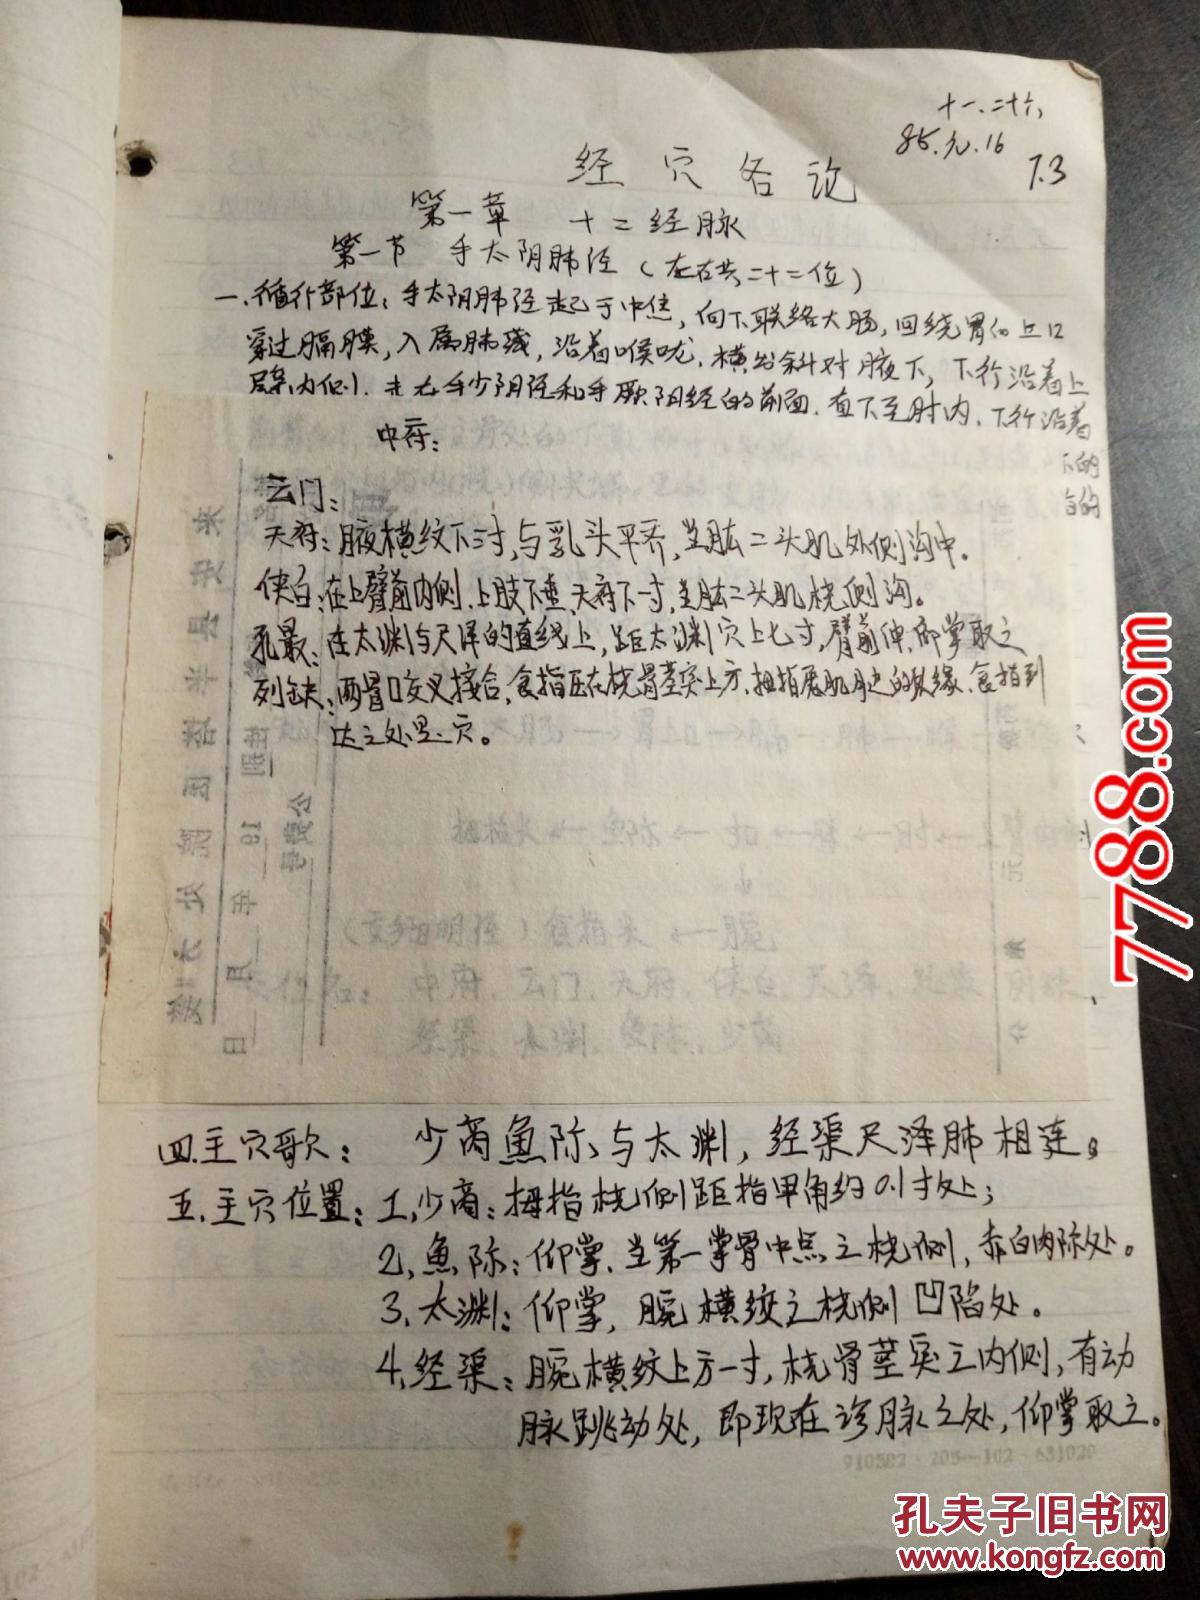 十一.二十六,
85.元.16
7.3
经穴各论
第一章 十二经脉
第一节 手太阴肺经(左右共二十二位)
一.循行部位:手太阴肺经起于中焦,向下联络大肠,回绕胃的上口
穿过膈膜,入属肺藏,沿着喉咙.横出斜对腋下,下行沿着上
臂内侧.走在手少阴经和手厥阴经的前面.直下至肘内.下行沿着
下的
白的
中府:
云门:
天府:腋横纹下三寸,与乳头平齐,当肱二头肌外侧沟中.
侠白:在上臂前内侧.上肢下垂、天府下一寸,当肱二头肌桡侧沟。
孔最:在太渊与尺泽的直线上,距太渊穴上七寸,臂前伸.仰掌取之
列缺:两骨口交叉接合.食指压在桡骨茎突上方.拇指展肌月边的外缘.食指到
达之处是穴。
四.主穴歌:少商鱼际与太渊,经渠尺泽肺相连。
五.主穴位置:1.少商:拇指桡侧距指甲角约0.1寸处;
2.鱼际:仰掌.当第一掌骨中点之桡侧,赤白肉际处。
3.太渊:仰掌,腕横纹之桡侧凹陷处。
4.经渠:腕横纹上方一寸,桡骨茎突之内侧,有动
脉跳动处,即现在诊脉之处,仰掌取之。
910502·205—102·631020
7788.com
孔夫子旧书网
www.kongfz.com